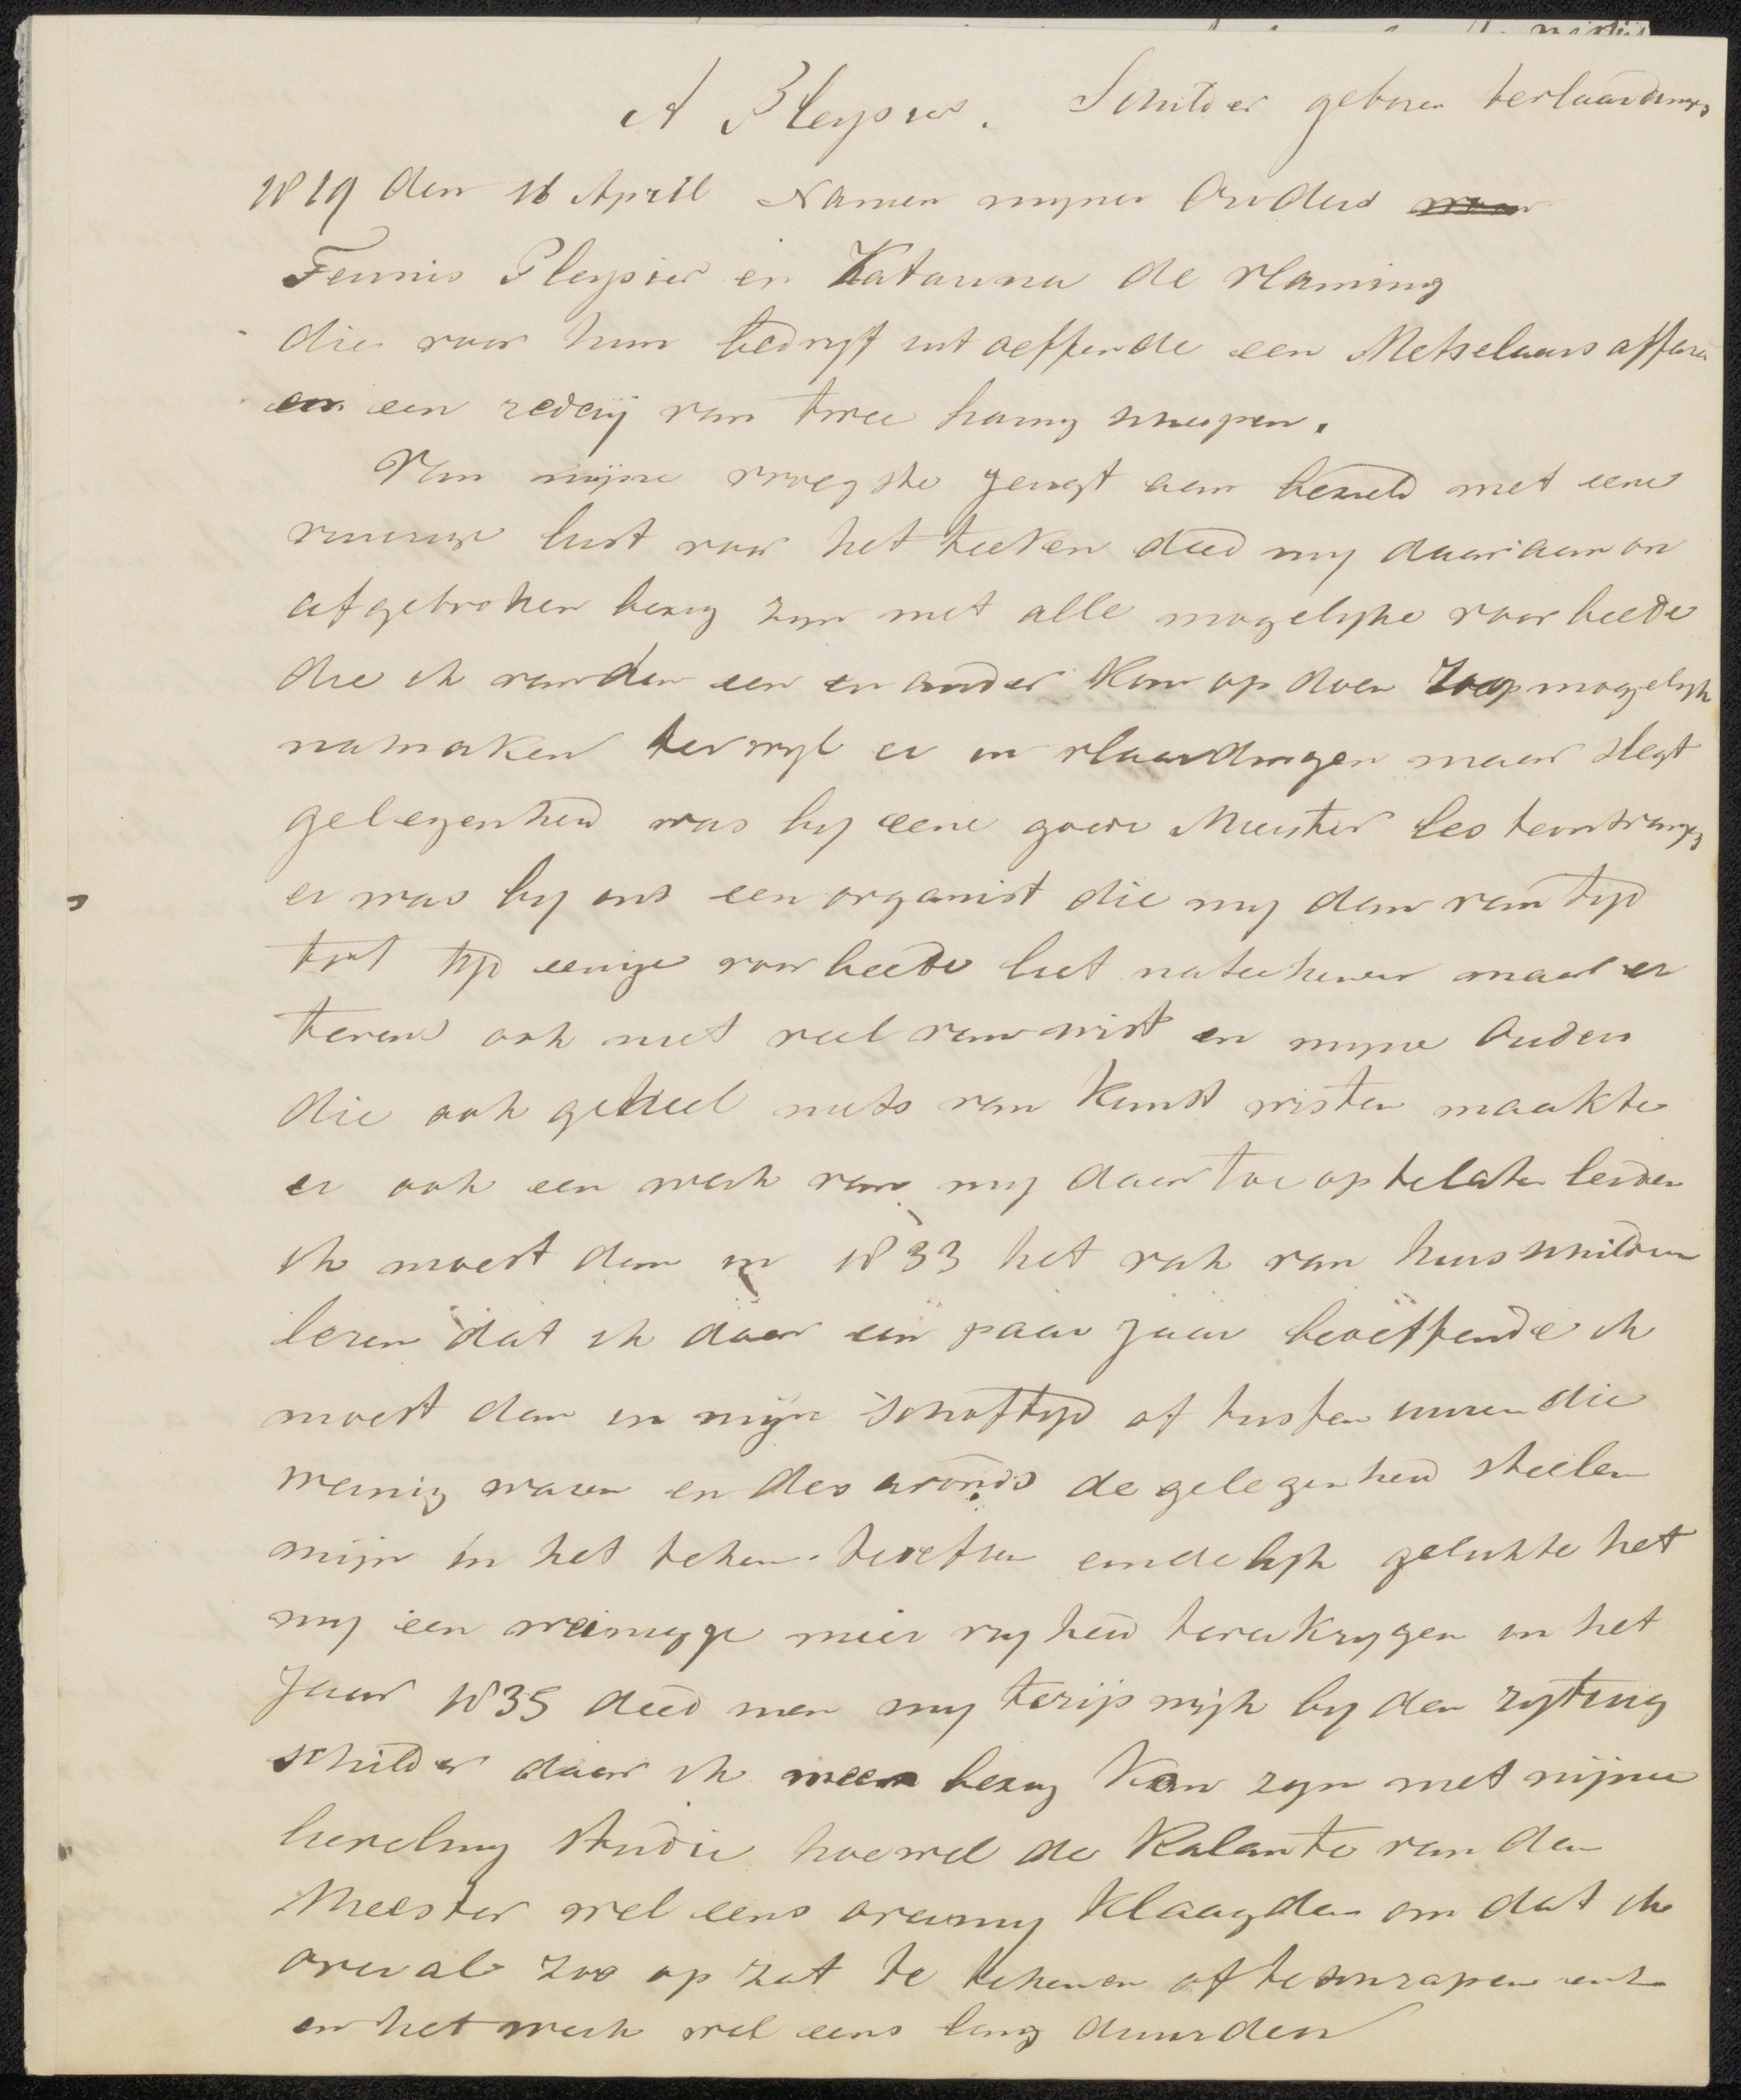 A Pleysier. Schilder geboren te vlaardingen
1819 den 16 April Namen mynen Ouders
Teunis Pleysier en Katarina de vlaming
die voor hun bedryf uit oeffende een Metselaars affaire
en een redery van twee haring schepen.
Van mijne vroegste jeugt aan bezield met eene
vuurige lust voor het teeken deed my daar aan on
afgebroken bezig zyn met alle mogelyke voor beelde
die ik van den een en ander kon op doen zoo mogelyk
namaken terwyl er in vlaardingen maar slegt
gelegenheid was by eene goede Meester les te ontvangen
er was by ons een organist die my dan van tyd
tot tyd eenige voor beelde liet nateekenen maar er
tevens ook niet veel van wist en myne Ouders
die ook geheel niets van kunst wisten maakte
er ook een werk van my daar toe op te laten leiden
ik moest dan in 1833 het vak van huis schilder
leren dat ik daar een paar jaar beoeffende ik
moest dan in mijn schoftyd of tussen uuren die
weinig waren en des avonds de gelegenheid steelen
mijn in het teken te oefnen eindelyk gelukte het
my een weinigge meer vryheid te verkrygen in het
Jaar 1835 deed men my te rijswijk by den rytuig
schilder daar ik meer bezig kon zyn met mijne
liveling studie hoewel de kalante van den
Meester wel eens over my klaagden om dat ik
overal zoo op zat te tekenen of te schrapen enz
en het werk wel eens lang duurden